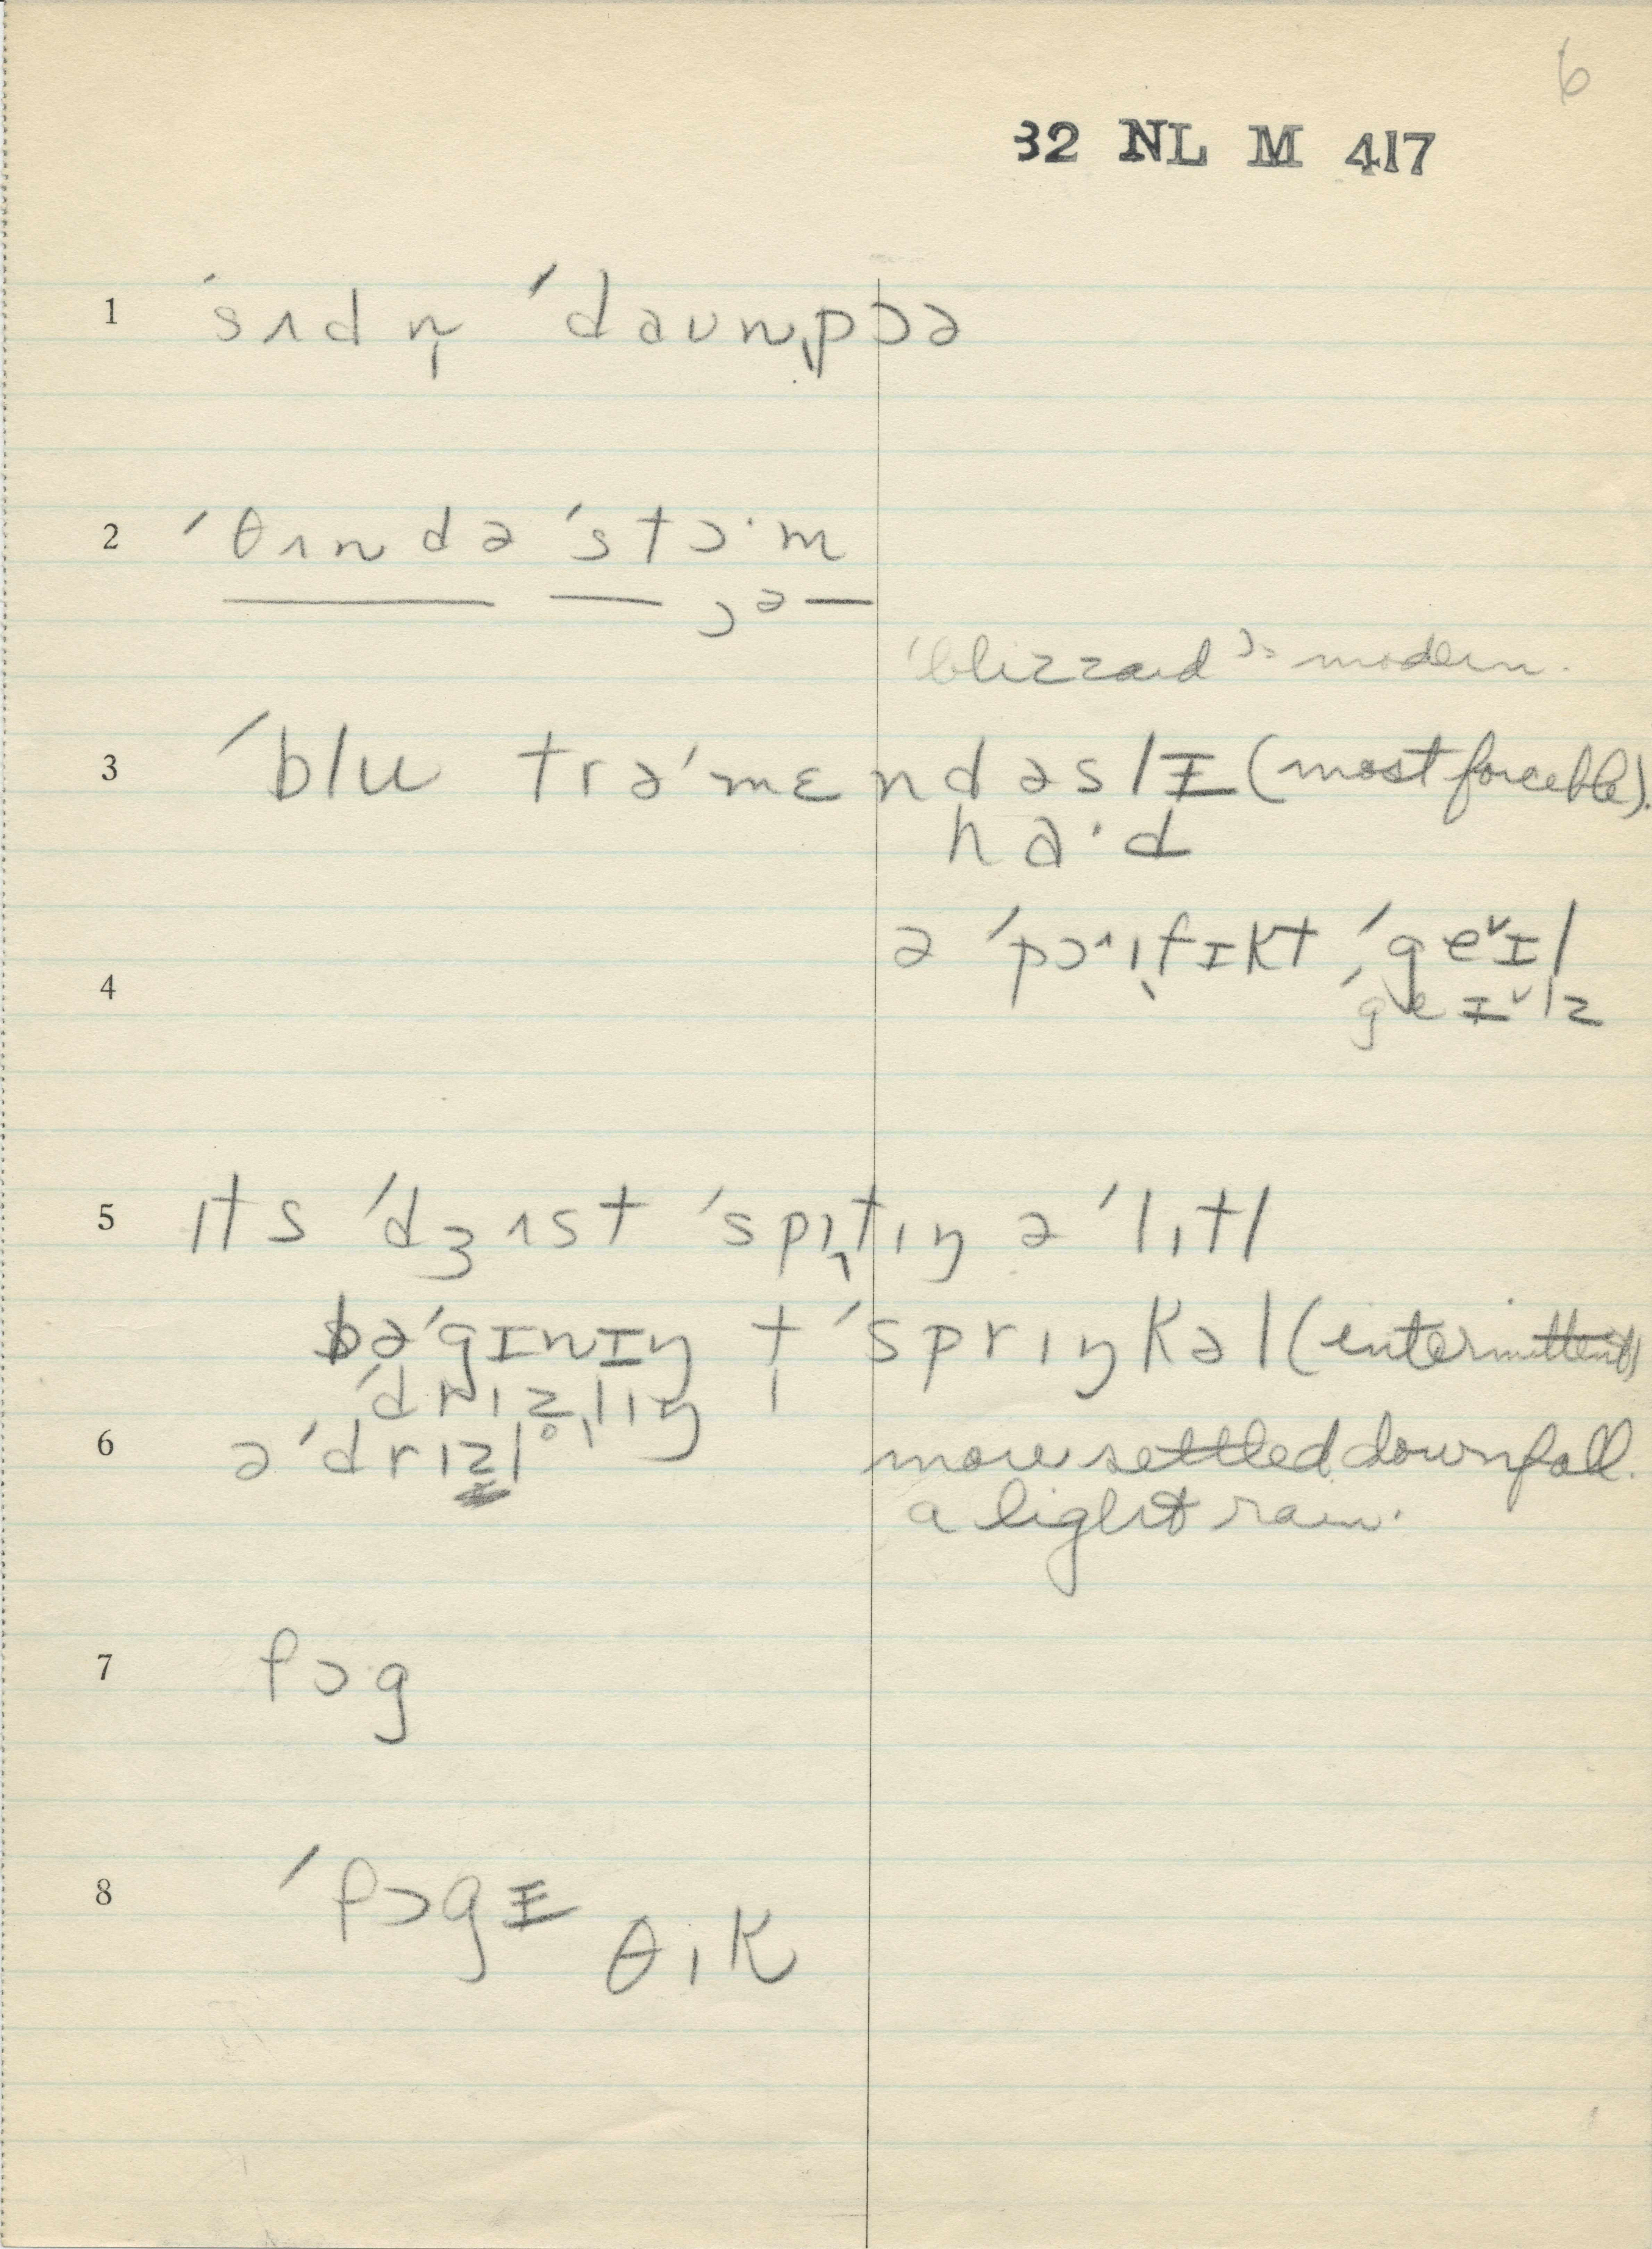 6
32 NL M 417
1 ˈsʌdn̩ ˈdaʊnˌpɔə
2 ˈθʌndə ˈstɔˑm
ɔᵊ
'blizzard' is modern.
3 ˈblu trəˈmɛndəslɪ (most forceble).
haˑd
ə ˈpɜˑɪfɪkt ˈgeˇɪl
4 ˈgeɪˇlz
5 ɪts ˈdʒʌst ˈspɪtɪŋ ə ˈlɪtl
bəˈgɪnɪŋ t ˈsprɪŋkəl (intermittent)
ˈdrɪz̥lɪŋ
6 ə ˈdrɪzl more settled downfall.
a light rain.
7 fɔg
8 ˈfɔgɪ
θɪk